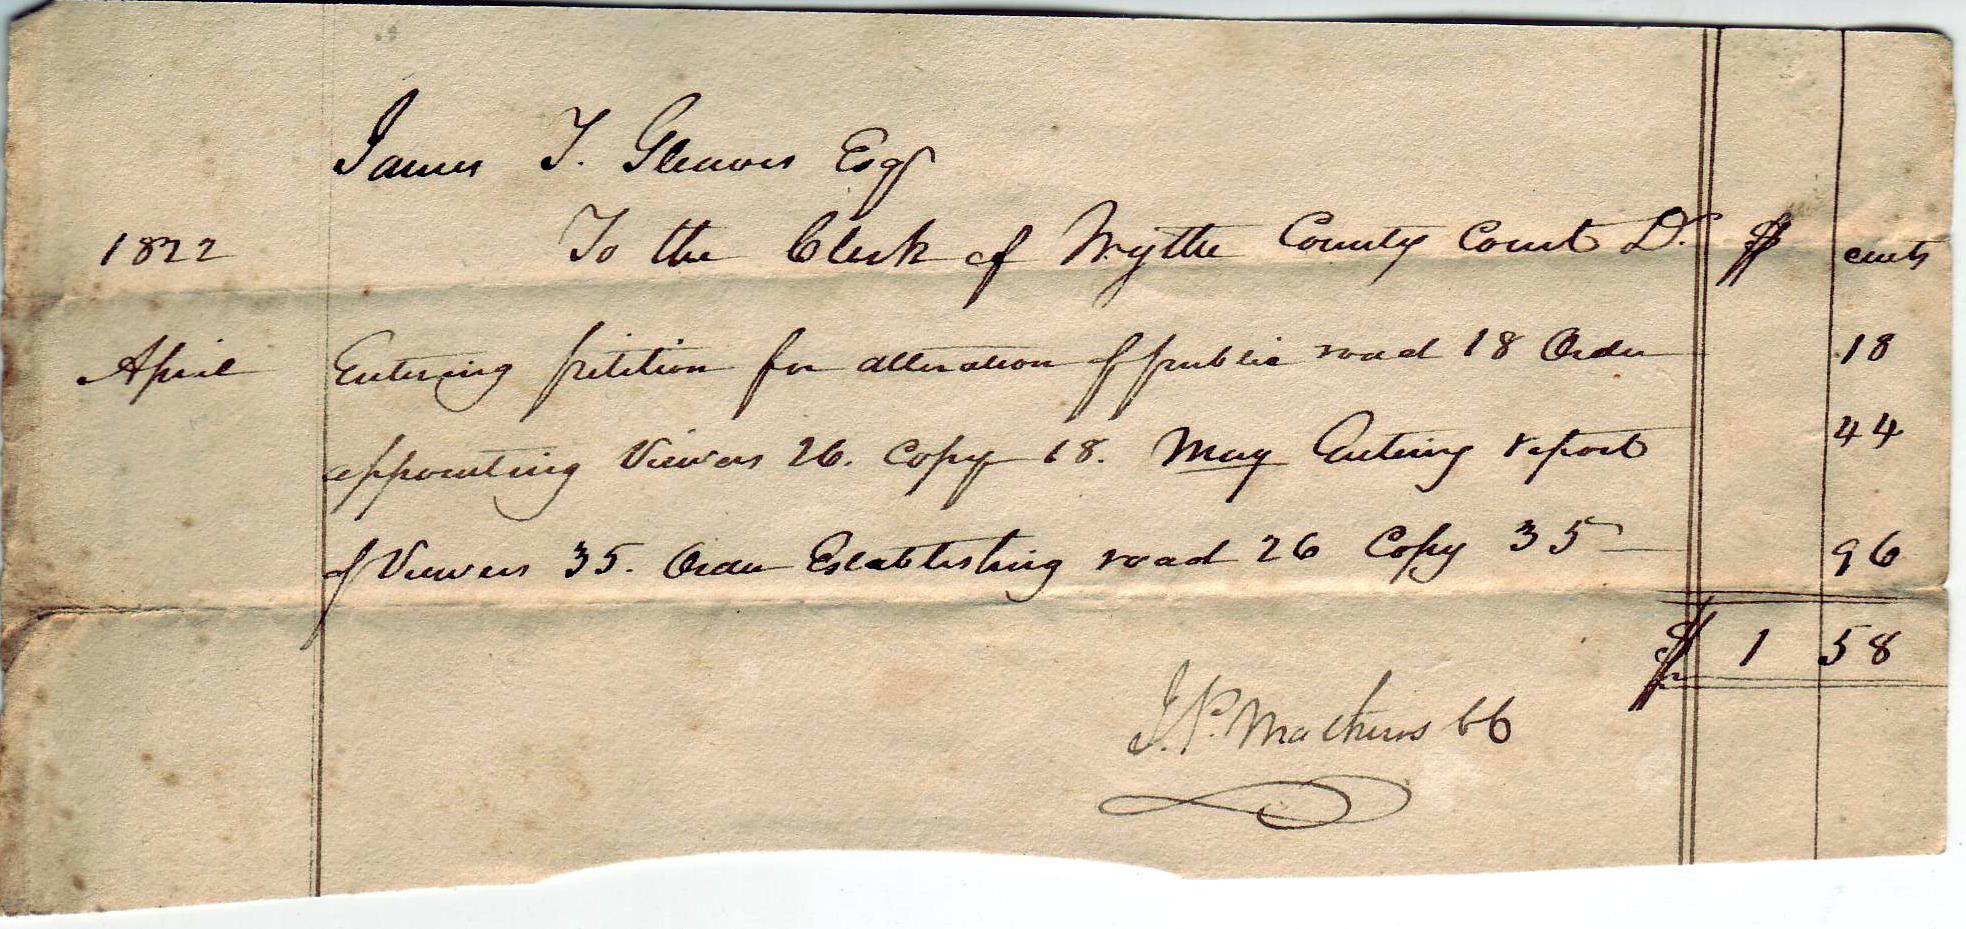 James T. Gleaves Esqr
1822 To the Clerk of Wythe County Court Dr. $ cents
April Entering petition for alteration of public road 18 Order 18
appointing Viewers 26. Copy 18. May Entering report 44
of Viewers 35. Order Establishing road 26 Copy 35 96
$ 1 58
J. P. Mathews CC